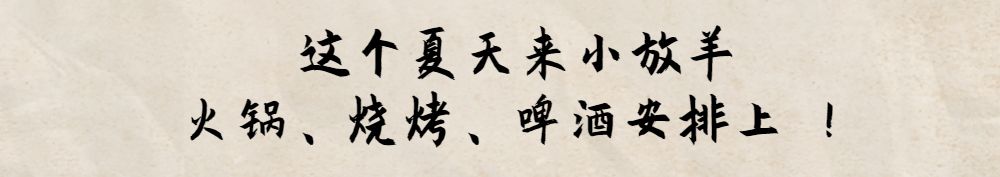 这个夏天来小放羊
火锅、烧烤、啤酒安排上 !